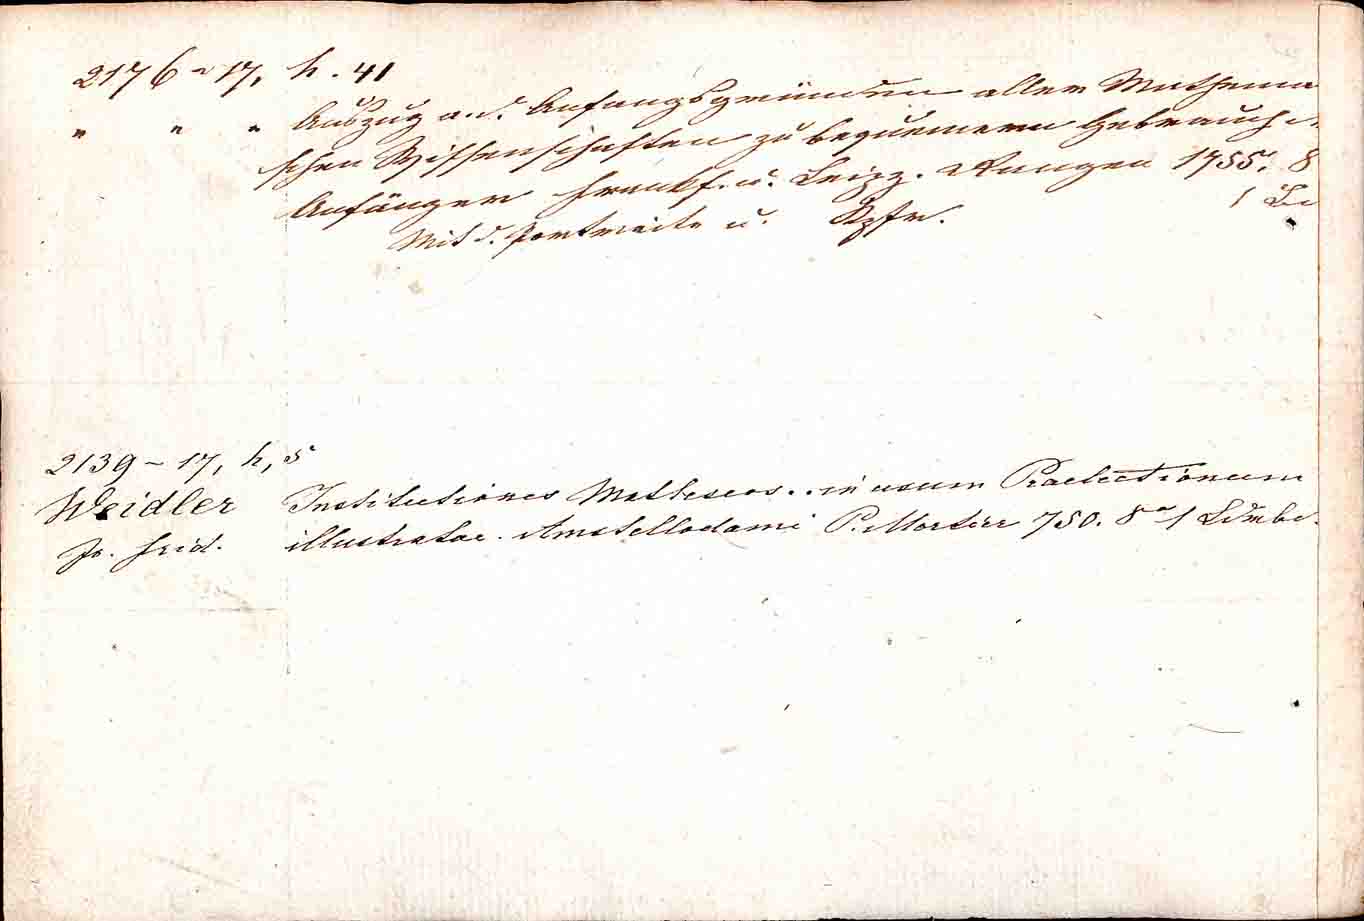 2176 – 17, h. 41
" " " Auszug a. d. Anfangsgründen aller Mathema
schen Wissenschaften zu bequemern Gebrauch d.
Anfänger Frankf. u. Leipz. Renger 1755. 8
Mit d. Portraite u. Kpfr. 1
2139 – 17, h, 5
Weidler Institutiones Matheseos .. in usum Praelectionum
Jo. Frid. illustratae. Amstellodami P. Mortier 750. 8° 1